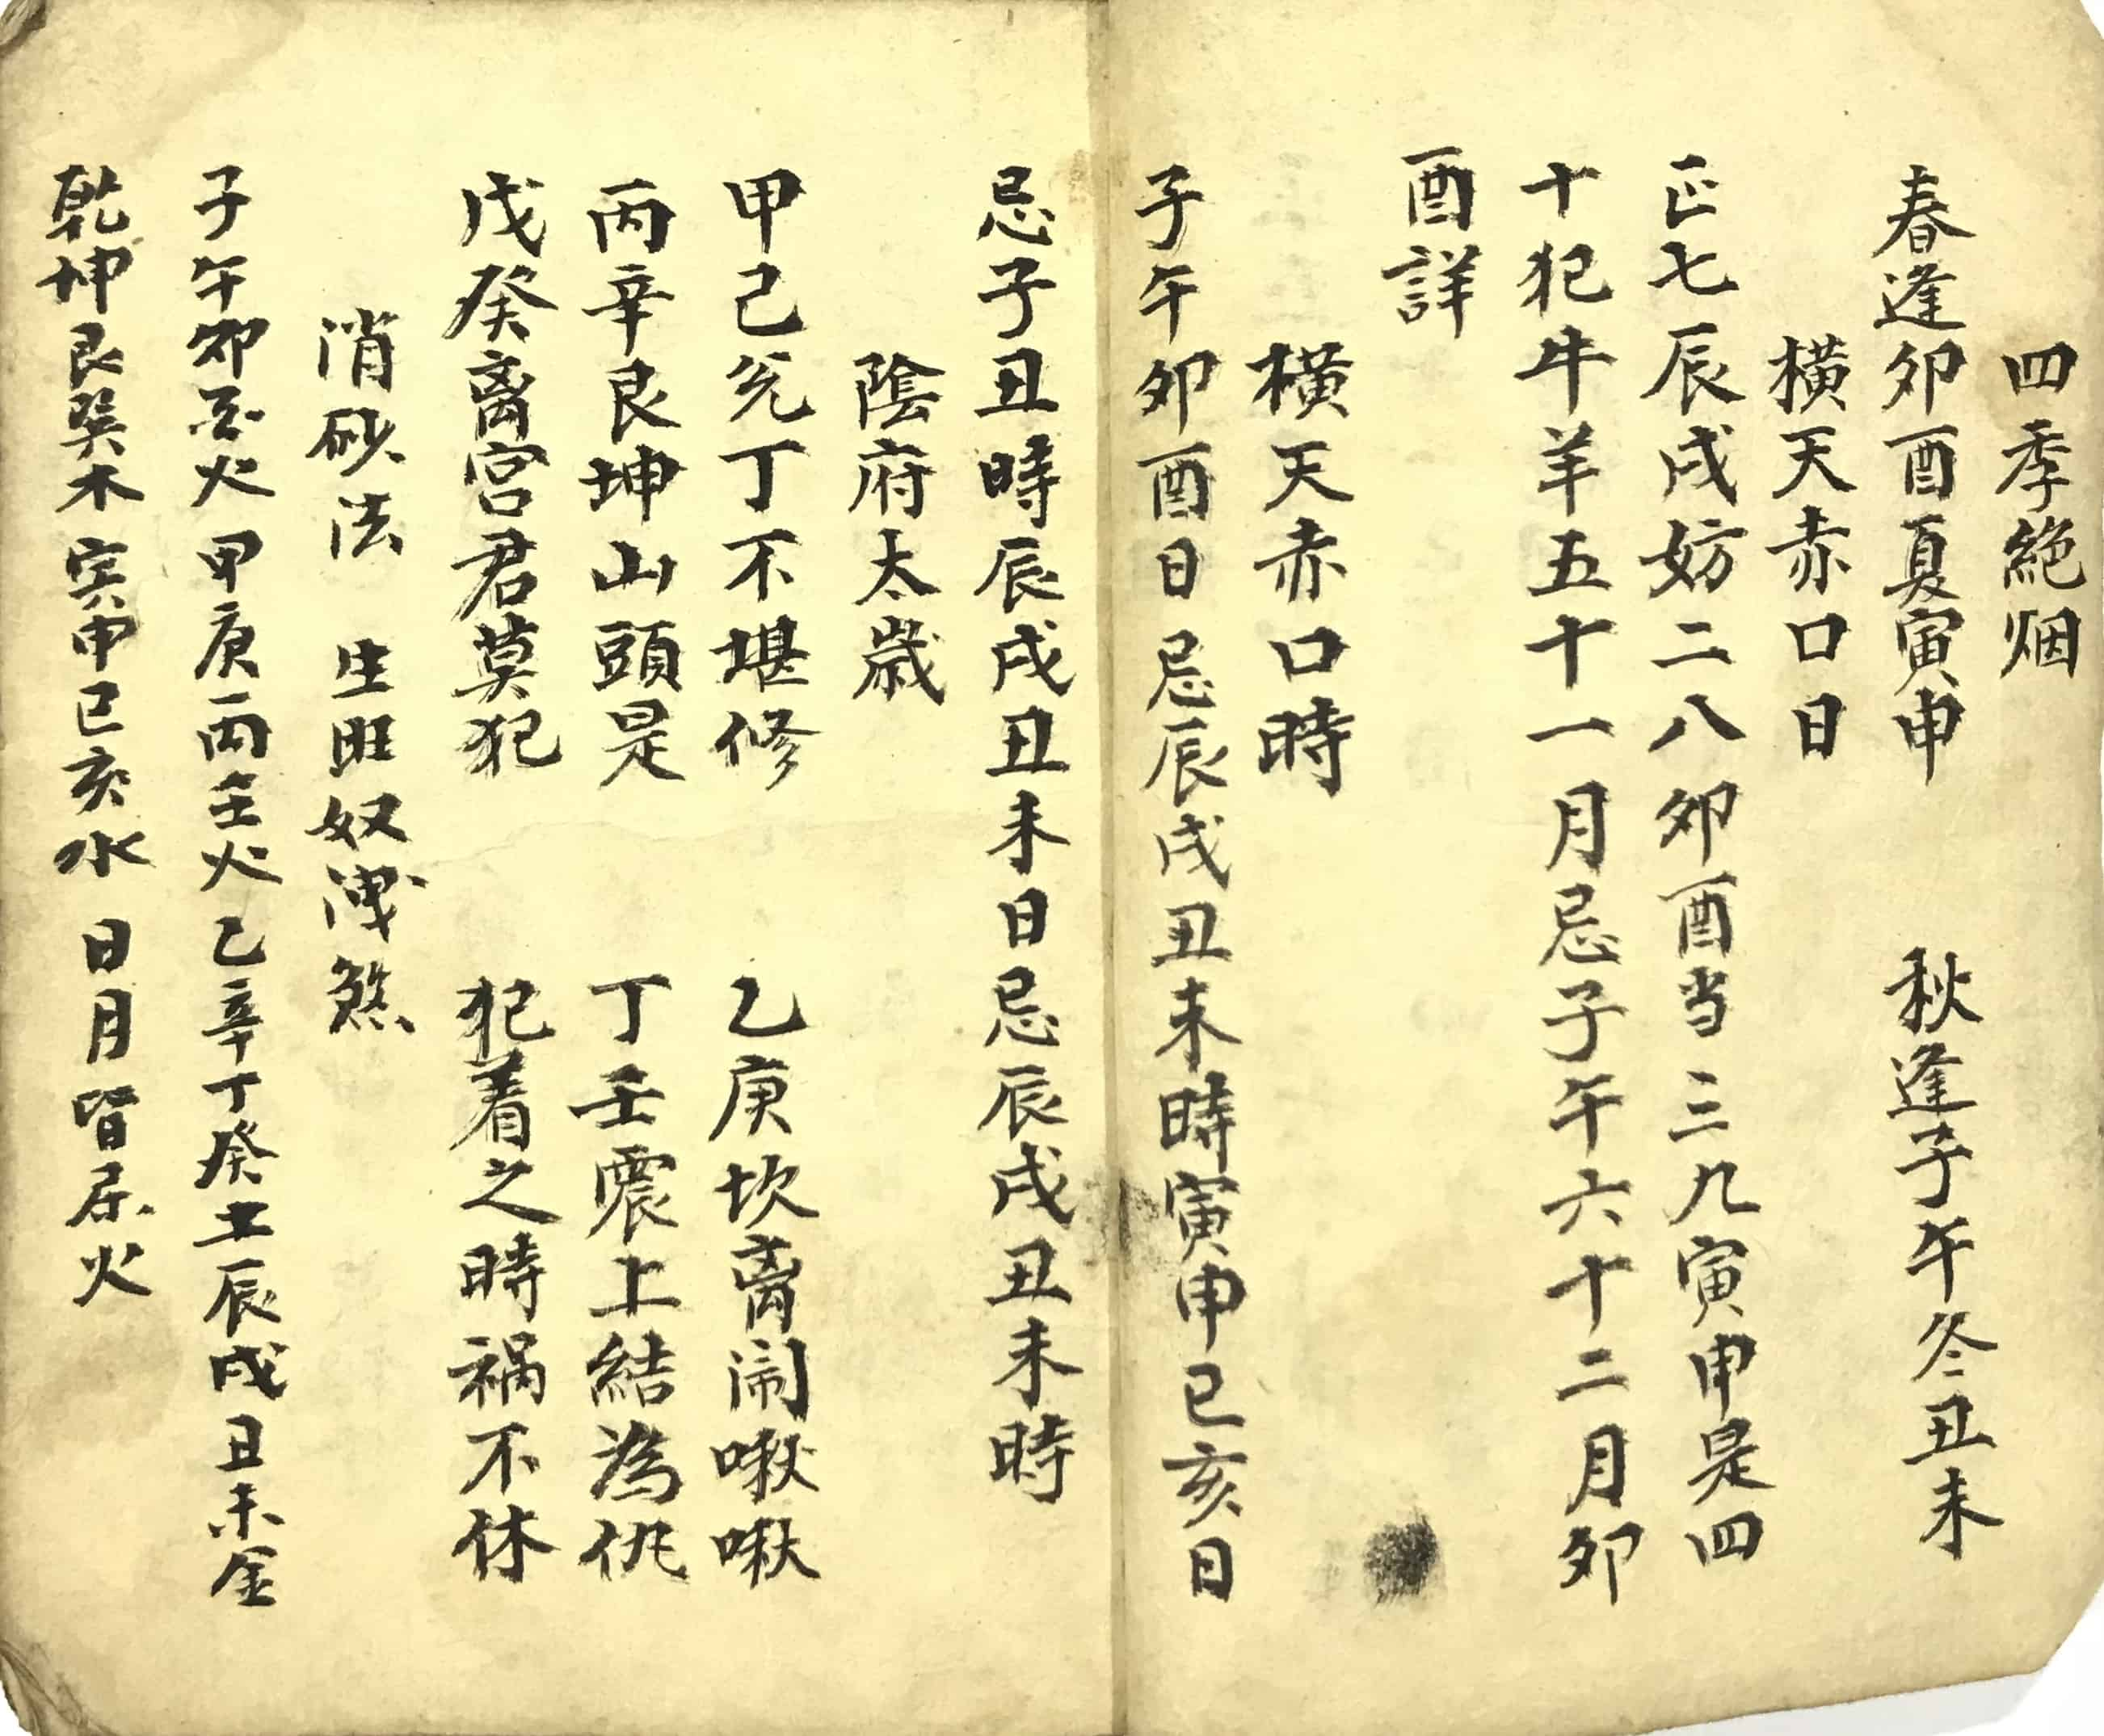 四季絕烟
春逢卯酉夏寅申 秋逢子午冬丑未
橫天赤口日
正七辰戌妨二八卯酉当三九寅申是四
十犯牛羊五十一月忌子午六十二月卯
酉詳
橫天赤口時
子午卯酉日忌辰戌丑未時寅申巳亥日
忌子丑時辰戌丑未日忌辰戌丑未時
陰府太歲
甲己兑丁不堪修 乙庚坎离闹啾啾
丙辛艮坤山頭是 丁壬震上結為仇
戊癸离宫君莫犯 犯着之時祸不休
消砂法 生旺奴洩煞
子午卯酉火甲庚丙壬火乙辛丁癸土辰戌丑未金
乾坤艮巽木寅申巳亥水日月皆屬火